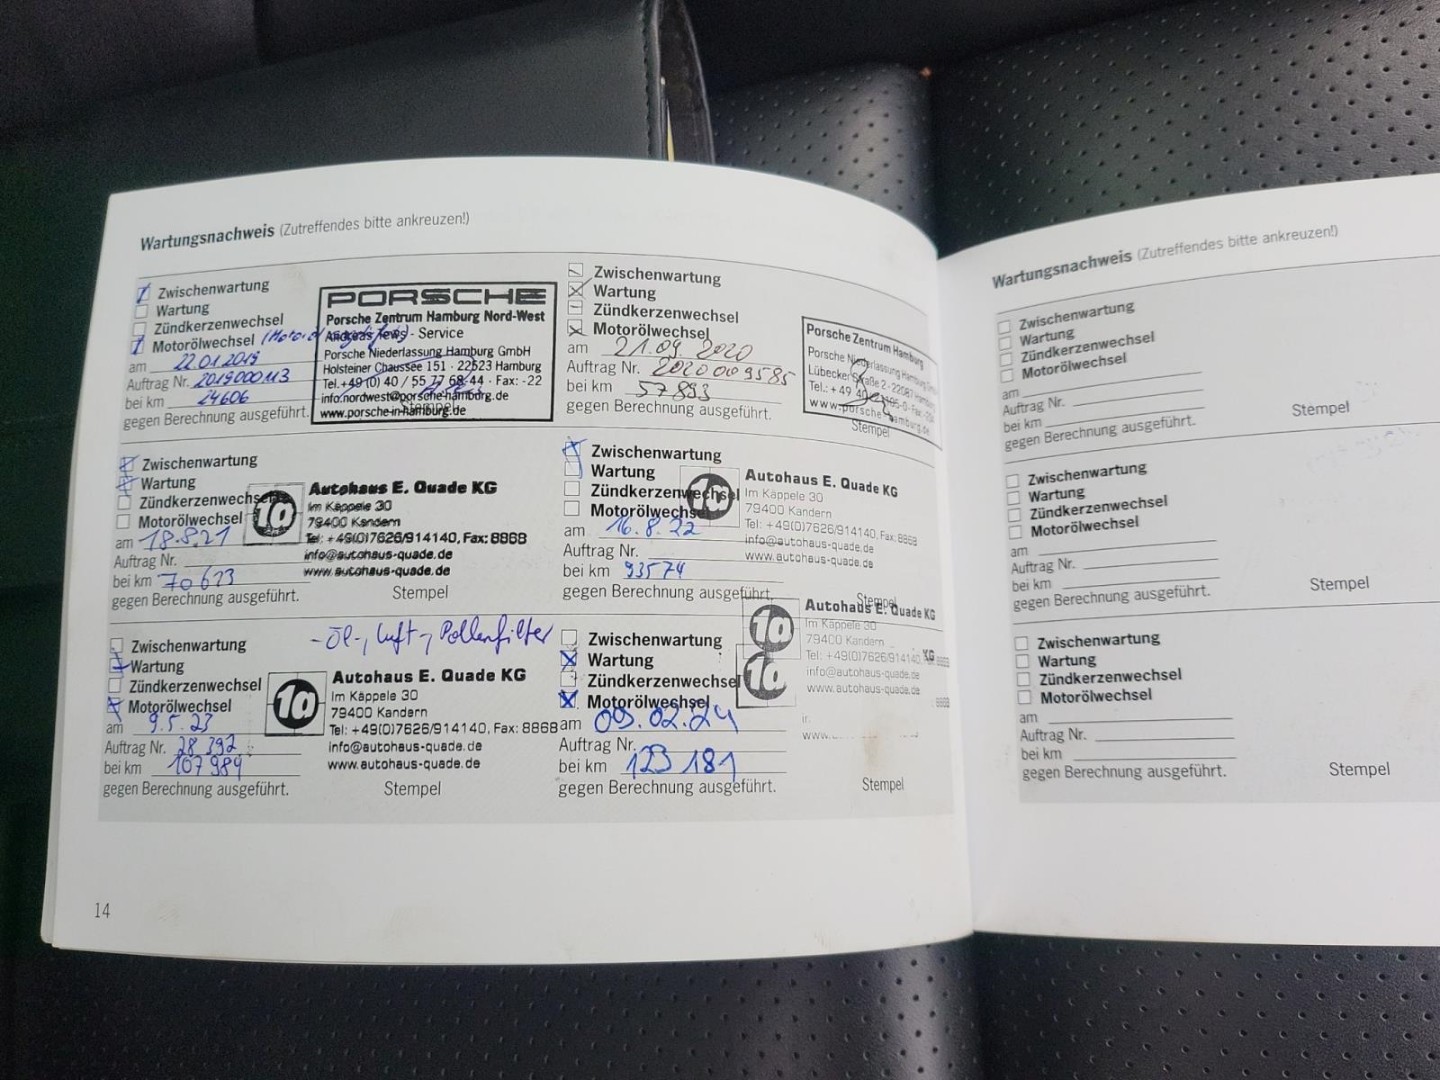 Wartungsnachweis (Zutreffendes bitte ankreuzen!)
Zwischenwartung
Wartung
Zündkerzenwechsel
Motorölwechsel
am 22.01.2019
Auftrag Nr. 2019000113
bei km 24606
gegen Berechnung ausgeführt.
PORSCHE
Porsche Zentrum Hamburg Nord-West
- Service
Porsche Niederlassung Hamburg GmbH
Holsteiner Chaussee 151 · 22523 Hamburg
Tel.+49 (0) 40 / 55 77 68-44 · Fax: -22
info.nordwest@porsche-hamburg.de
www.porsche-in-hamburg.de
Stempel
Zwischenwartung
Wartung
Zündkerzenwechsel
Motorölwechsel
am 21.09.2020
Auftrag Nr. 2020009585
bei km 57893
gegen Berechnung ausgeführt.
Porsche Zentrum Hamburg
Porsche Niederlassung Hamburg
Stempel
Zwischenwartung
Wartung
Zündkerzenwechsel
Motorölwechsel
am 18.8.21
Auftrag Nr.
bei km 70623
gegen Berechnung ausgeführt.
1a
Autohaus E. Quade KG
Im Käppele 30
79400 Kandern
Tel: +49(0)7626/914140, Fax: 8868
info@autohaus-quade.de
www.autohaus-quade.de
Stempel
Zwischenwartung
Wartung
Zündkerzenwechsel
Motorölwechsel
am 16.8.22
Auftrag Nr.
bei km 93574
gegen Berechnung ausgeführt.
1a
Autohaus E. Quade KG
Im Käppele 30
79400 Kandern
Tel: +49(0)7626/914140, Fax: 8868
info@autohaus-quade.de
www.autohaus-quade.de
Stempel
- Öl-, Luft-, Pollenfilter
Zwischenwartung
Wartung
Zündkerzenwechsel
Motorölwechsel
am 9.5.23
Auftrag Nr. 28392
bei km 107984
gegen Berechnung ausgeführt.
1a
Autohaus E. Quade KG
Im Käppele 30
79400 Kandern
Tel: +49(0)7626/914140, Fax: 8868
info@autohaus-quade.de
www.autohaus-quade.de
Stempel
Zwischenwartung
Wartung
Zündkerzenwechsel
Motorölwechsel
am 09.02.24
Auftrag Nr.
bei km 123181
gegen Berechnung ausgeführt.
1a
1a
Autohaus E. Quade KG
Im Käppele 30
79400 Kandern
Tel: +49(0)7626/914140,
info@autohaus-quade.de
www.autohaus-quade.de
KG
8868
www.
Stempel
14
Wartungsnachweis (Zutreffendes bitte ankreuzen!)
Zwischenwartung
Wartung
Zündkerzenwechsel
Motorölwechsel
am
Auftrag Nr.
bei km
gegen Berechnung ausgeführt.
Stempel
Zwischenwartung
Wartung
Zündkerzenwechsel
Motorölwechsel
am
Auftrag Nr.
bei km
gegen Berechnung ausgeführt.
Stempel
Zwischenwartung
Wartung
Zündkerzenwechsel
Motorölwechsel
am
Auftrag Nr.
bei km
gegen Berechnung ausgeführt.
Stempel